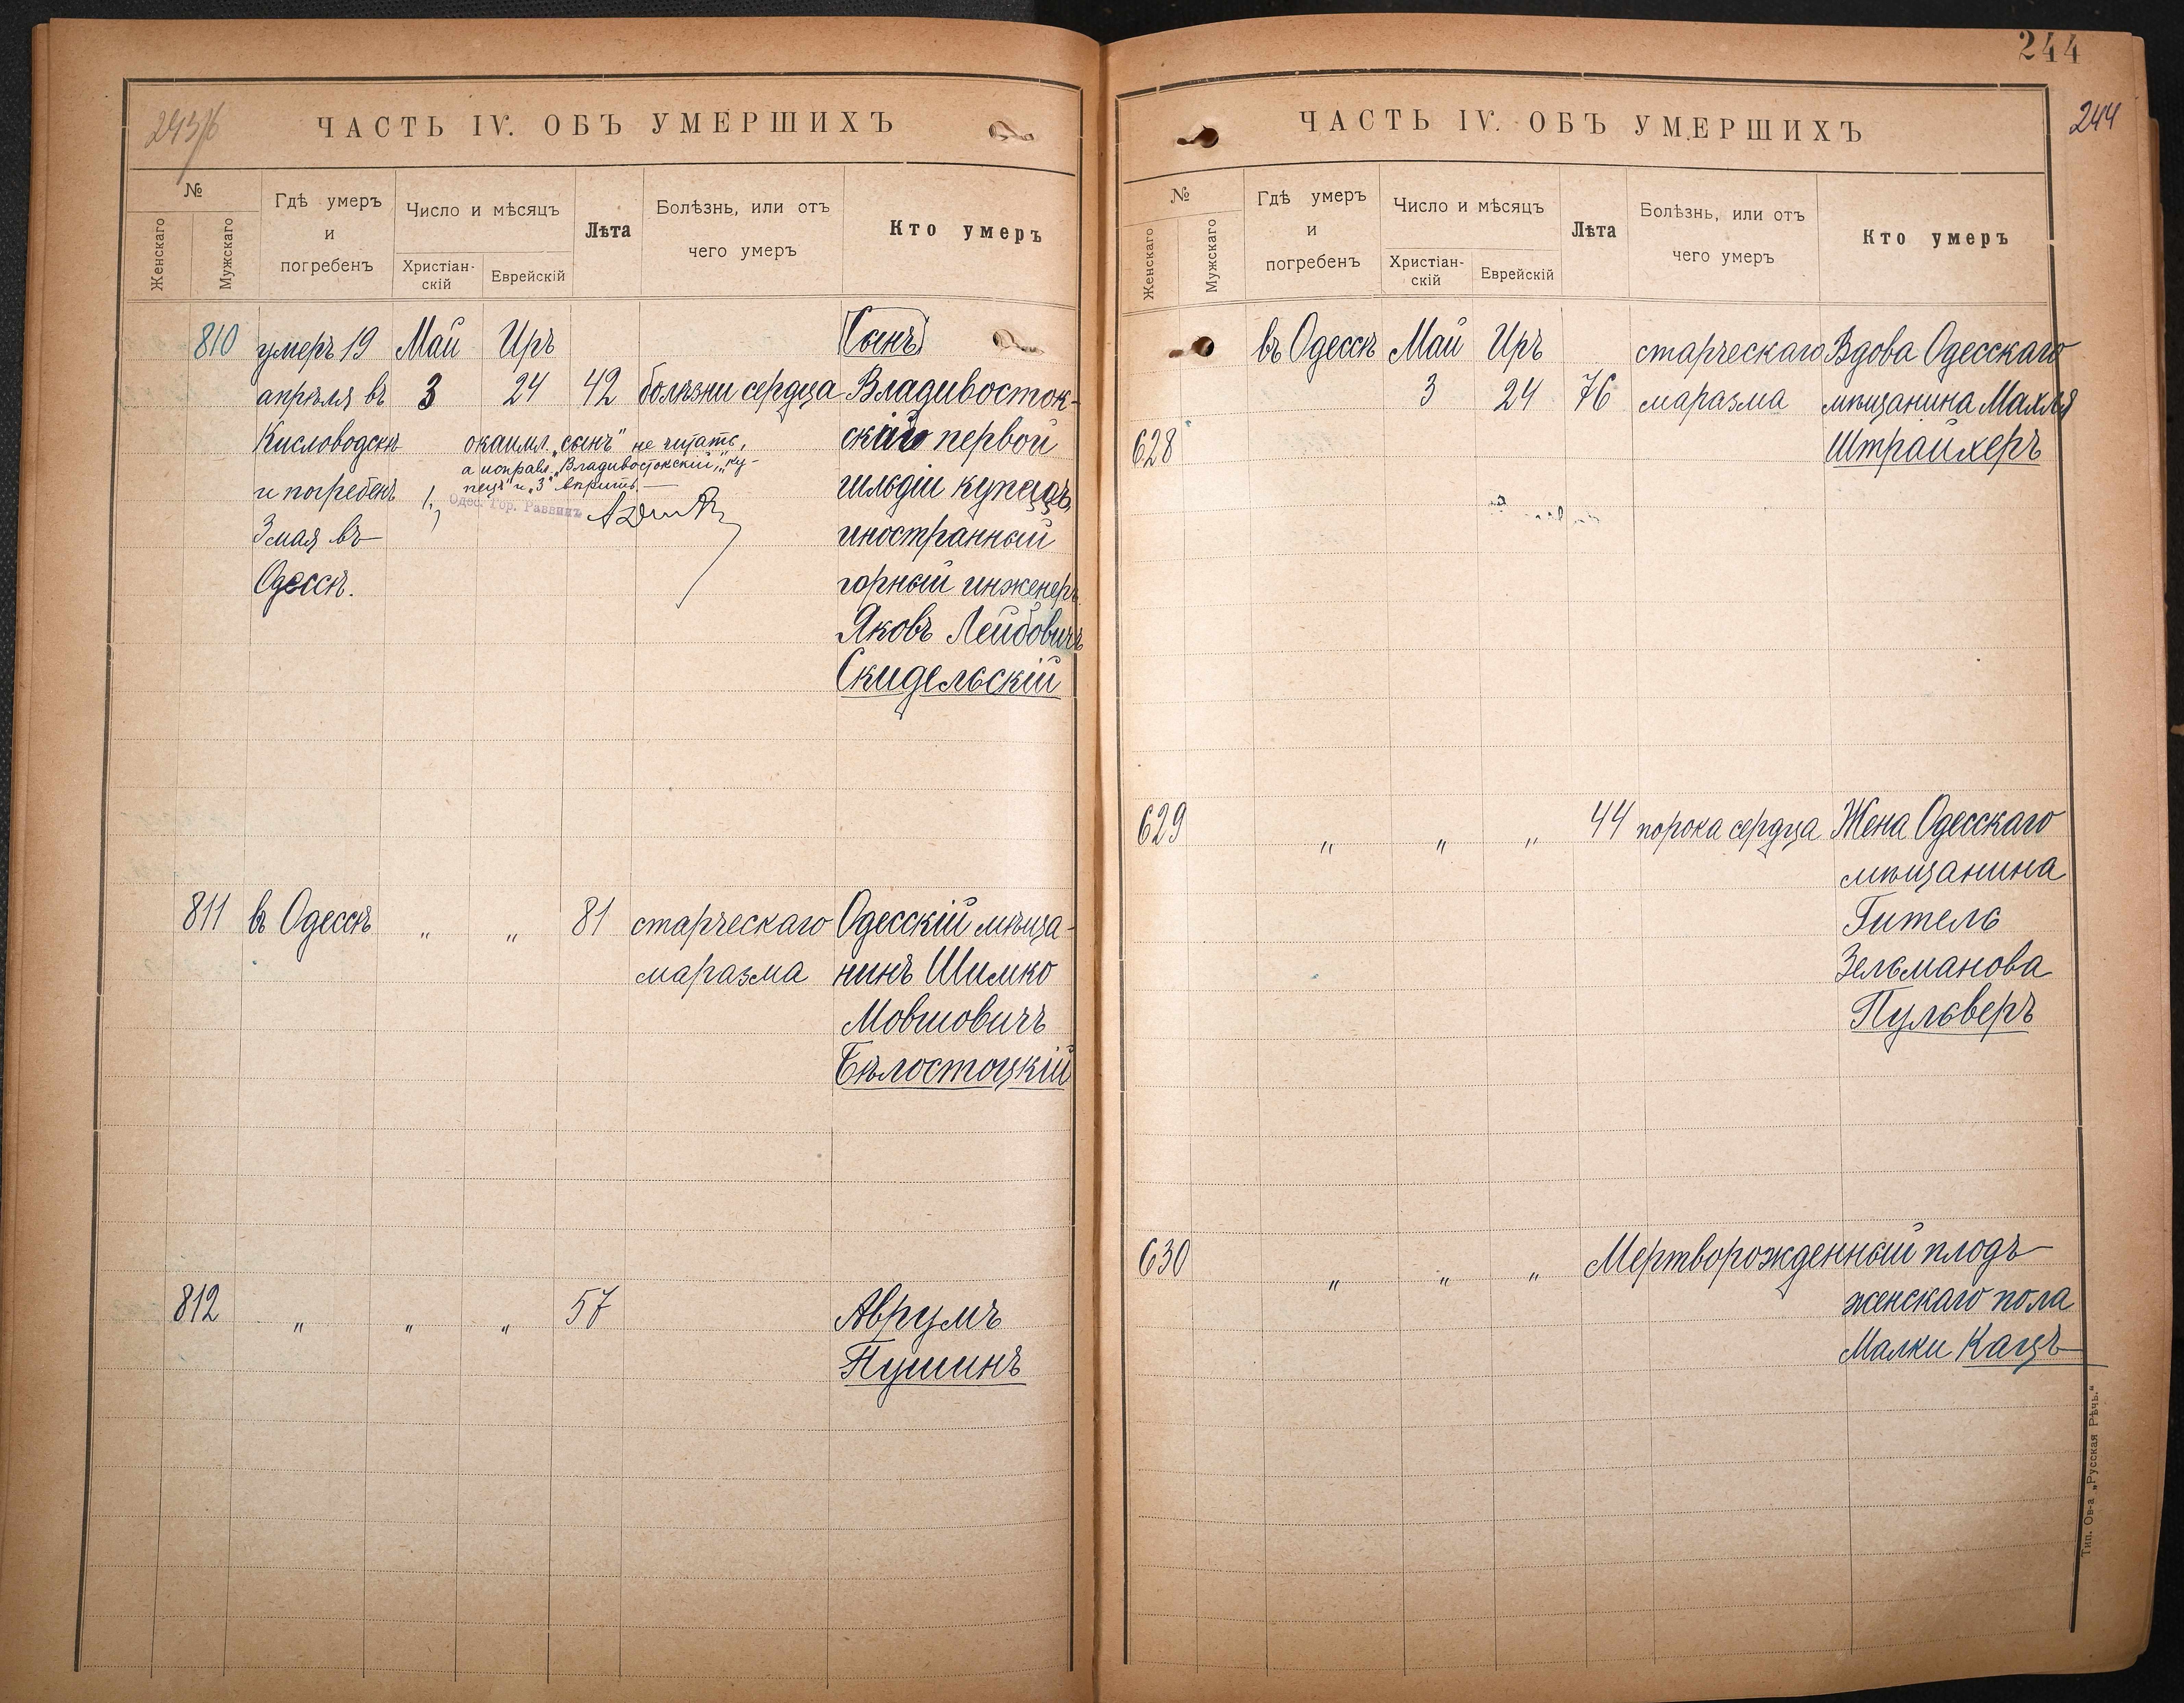 243/б
ЧАСТЬ IV. ОБЪ УМЕРШИХЪ
№
Женскаго
Мужскаго
Гдѣ умеръ
и
погребенъ
Число и мѣсяцъ
Христіан-
скій
Еврейскій
Лѣта
Болѣзнь, или отъ
чего умеръ
Кто умеръ
810 умеръ 19 Май Иръ Сынъ
апрѣля въ 3 24 42 болѣзни сердца Владивосток-
Кисловодскѣ окаймл. „сынъ" не читать, скій первой
а исправл. „Владивостокскій", „ку-
и погребенъ пецъ" и „3" вѣрить. гильдіи купецъ,
Одес. Гор. Раввинъ
3 мая въ иностранный
Одессѣ. горный инженеръ
Яковъ Лейбовичъ
Скидельскій
811 въ Одессѣ " " 81 старческаго Одесскій мѣща-
маразма нинъ Шимко
Мовшовичъ
Бѣлостоцкій
812 " " " 57 Аврумъ
Пушинъ
244
244
ЧАСТЬ IV. ОБЪ УМЕРШИХЪ
№
Женскаго
Мужскаго
Гдѣ умеръ
и
погребенъ
Число и мѣсяцъ
Христіан-
скій
Еврейскій
Лѣта
Болѣзнь, или отъ
чего умеръ
Кто умеръ
въ Одессѣ Май Иръ старческаго Вдова Одесскаго
3 24 76 маразма мѣщанина Махля
628 Штрайхеръ
629 " " " 44 порока сердца Жена Одесскаго
мѣщанина
Гитель
Зельманова
Пульверъ
630 " " " Мертворожденный плодъ
женскаго пола
Малки Кацъ
Тип. Ов-а „Русская Рѣчь."